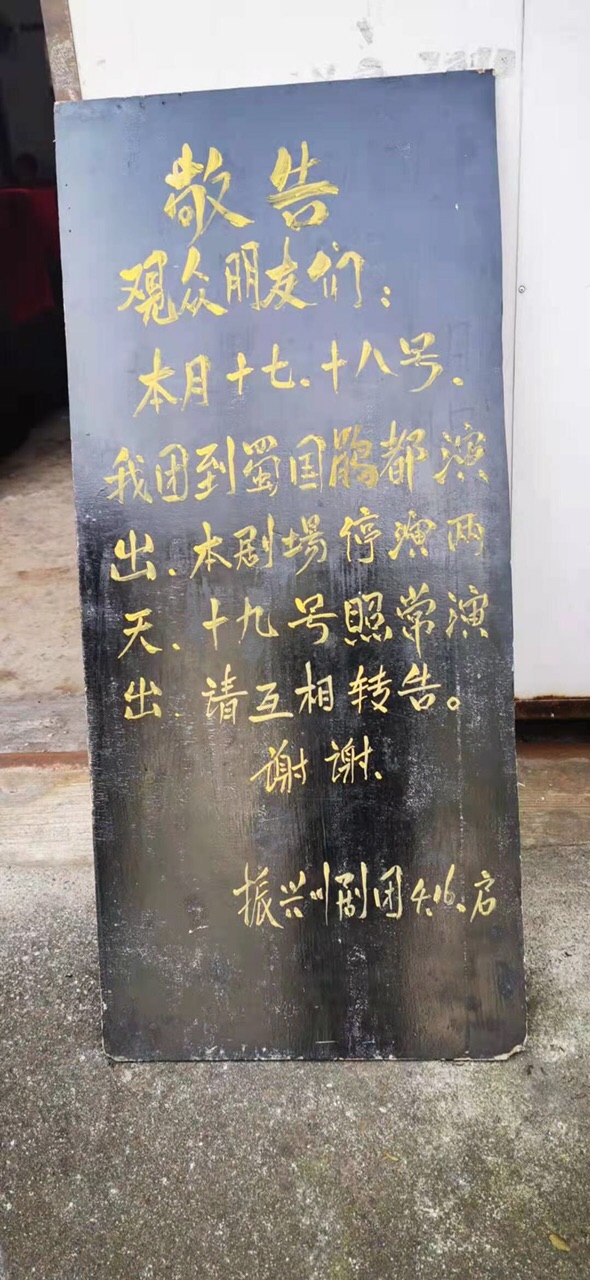 敬告
观众朋友们：
本月十七、十八号、
我团到蜀国鹃都演
出、本剧場停演两
天、十九号照常演
出、请互相转告。
谢谢、
振兴川剧团4.16、启